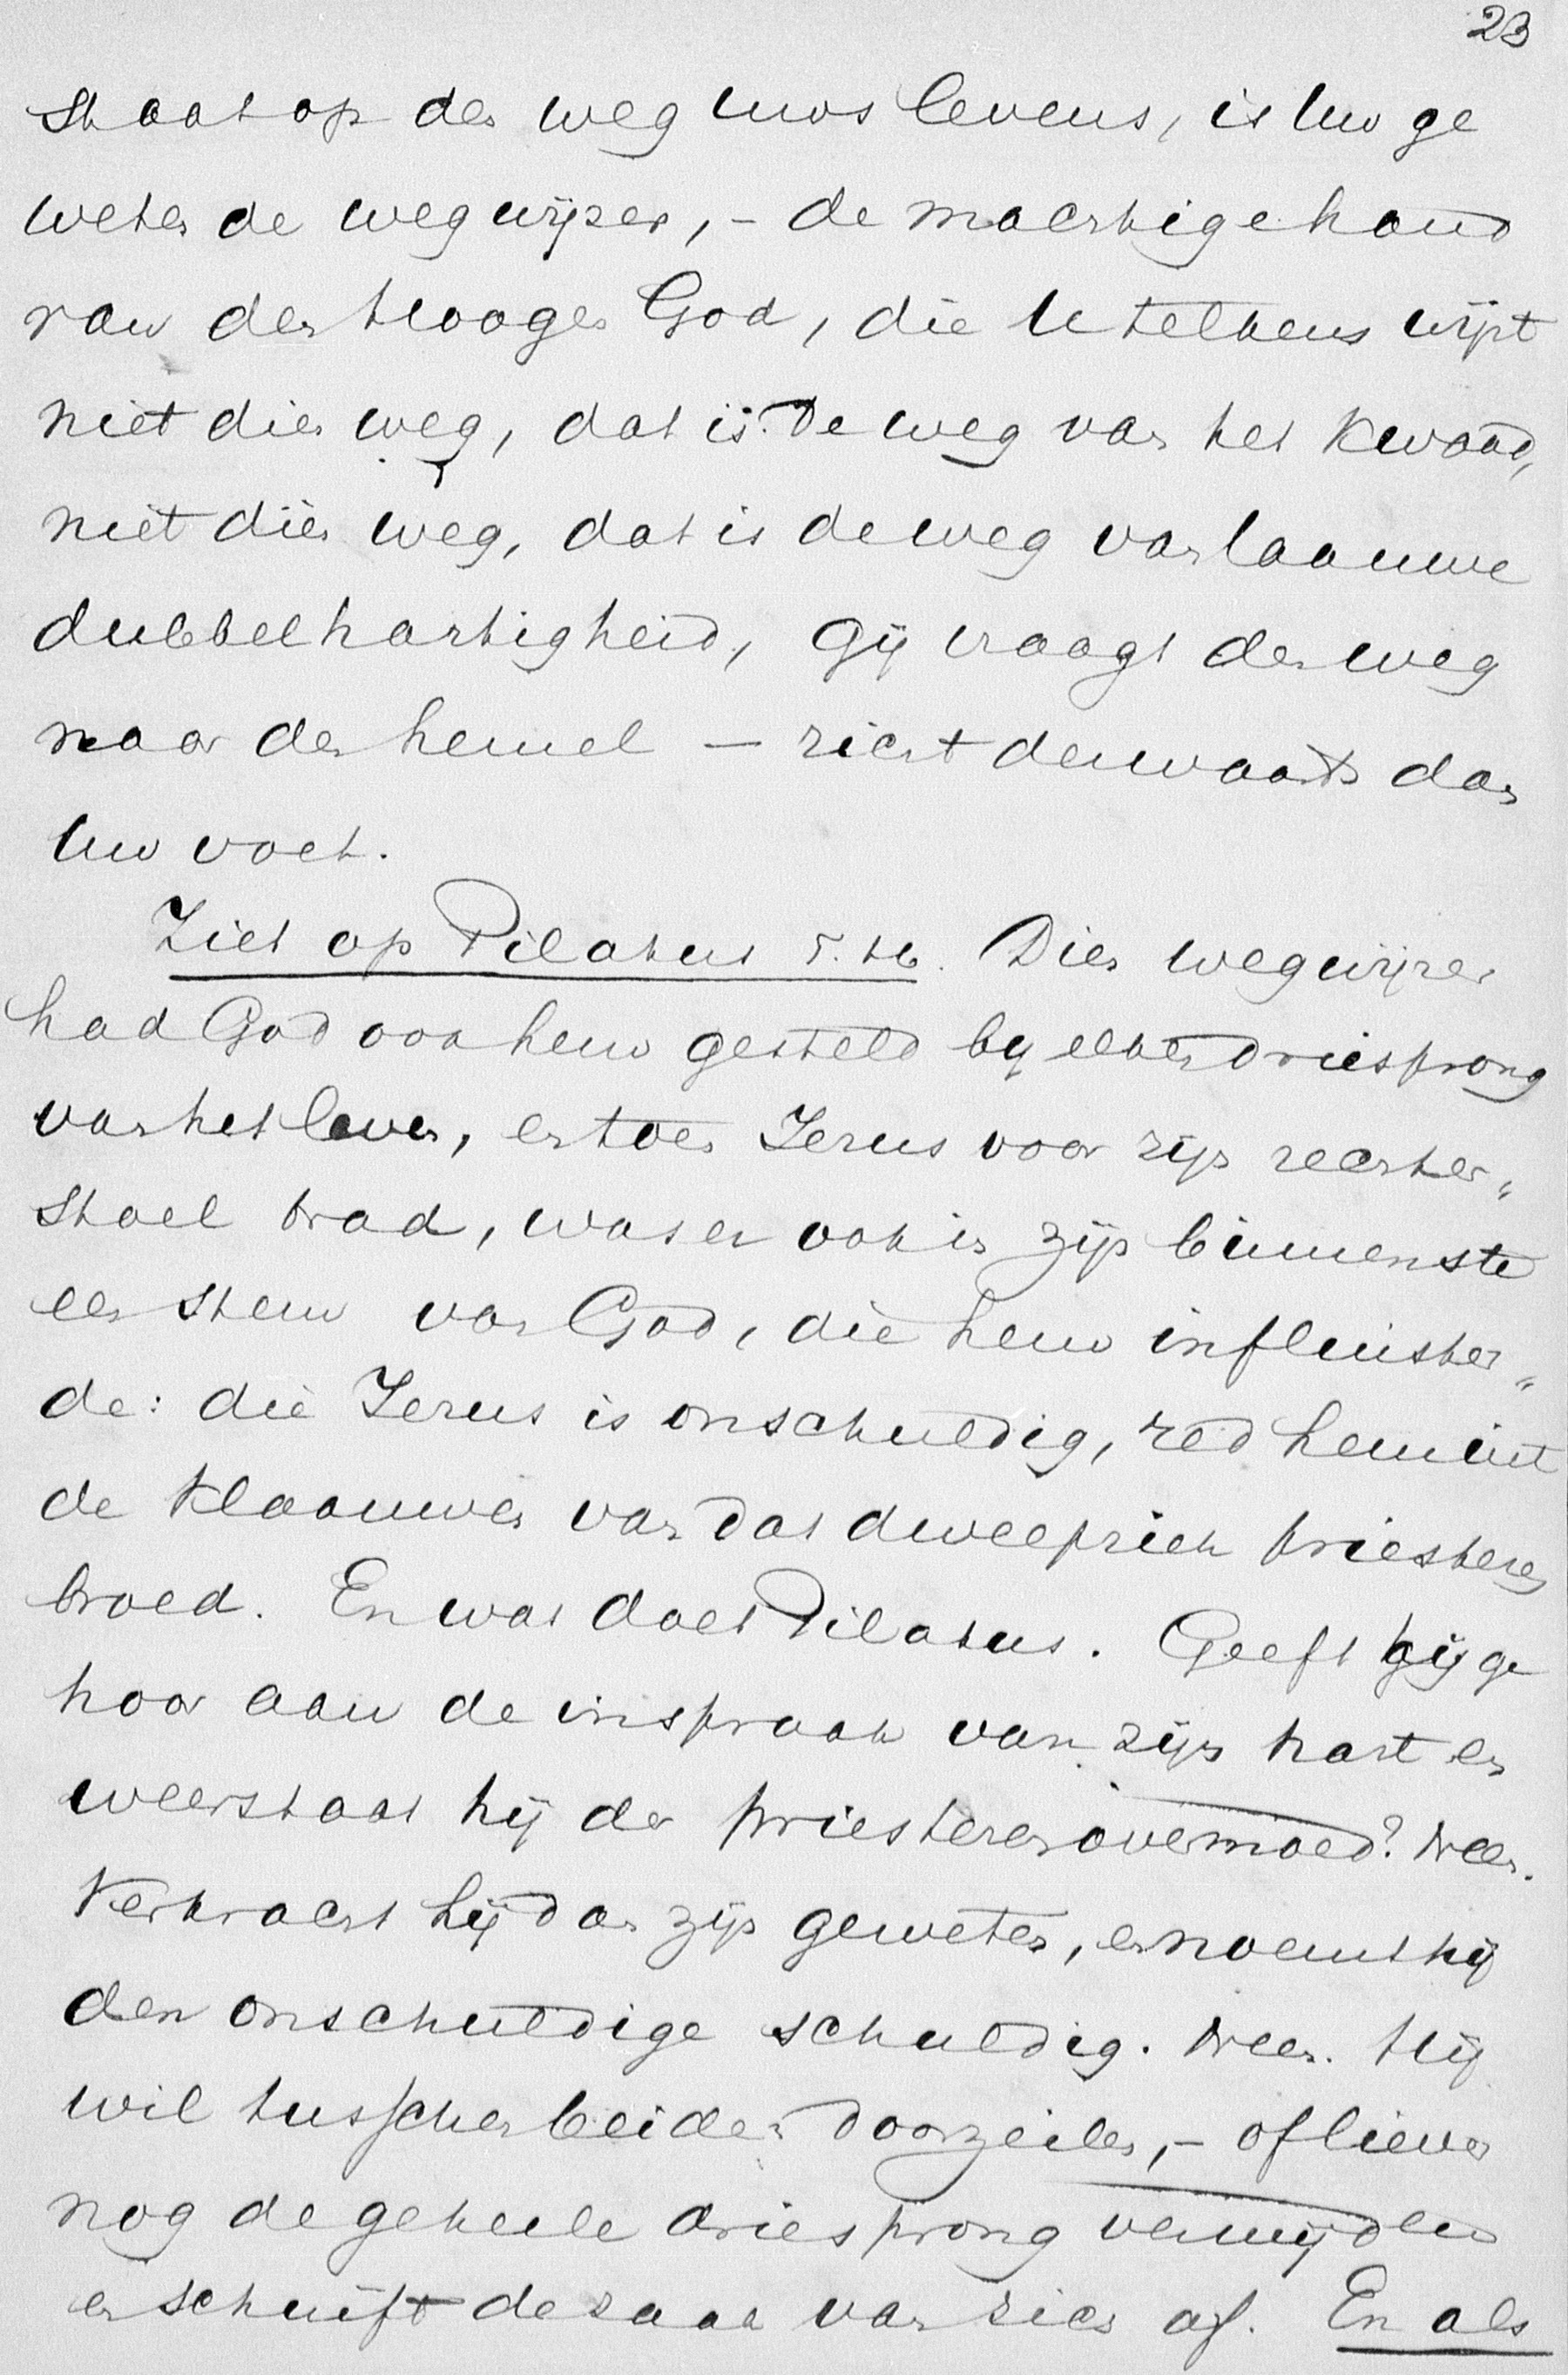 23
staat op den weg uws levens, is Uw ge
weten de wegwijzer, – de machtige hand
van den Hoogen God, die U telkens wijst
niet dien weg, dat is de weg van het kwaad,
niet dien weg, dat is de weg van laauwe
dubbelhartigheid, gij vraagt den weg
naar den hemel – richt derwaarts dan
Uw voet.
Ziet op Pilatus T. H. Dien wegwijzer
had God ook hem gesteld bij elken driesprong
van het leven, en toen Jezus voor zijn rechter„
stoel trad, was er ook in zijn binnenste
een stem van God, die hem influister„
de: die Jezus is onschuldig, red hem uit
de klaauwen van dat dweepziek priesteren
broed. En wat doet Pilatus. Geeft hij ge
hoor aan de inspraak van zijn hart en
weerstaat hij den priesterenovermoed? Neen.
Verkracht hij dan zijn geweten, en noemt hij
den onschuldige schuldig. Neen. Hij
wil tusschen beiden doorzeilen, – of liever
nog de geheele driesprong vermijden
en schuift de zaak van zich af. En als